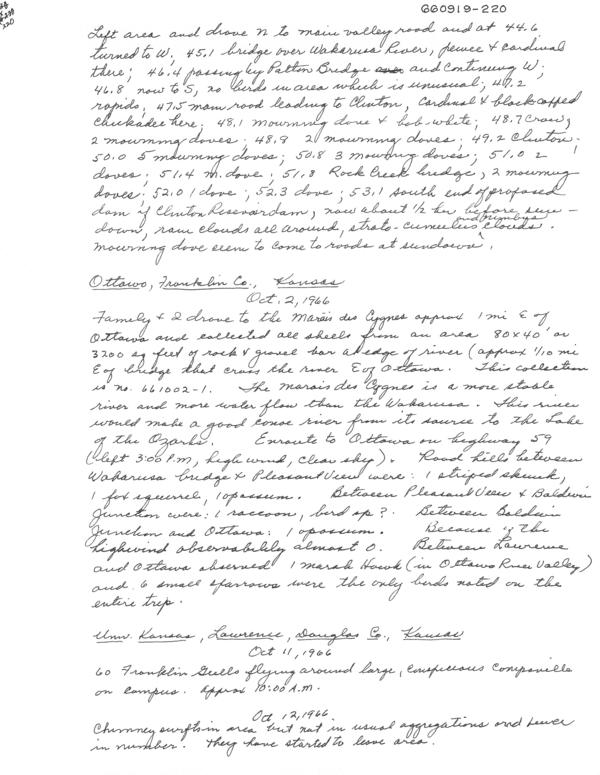 660919-220
Left area and drove N to main valley road and at 44.6
turned to W; 45.1 bridge over Wakarusa River, pewee & cardinal
there; 46.4 passing by Patton Bridge and continuing W;
46.8 now to S, no birds in area which is unusual; 47.2
rapids; 47.5 main road leading to Clinton, Cardinal & black-capped
chickadee here; 48.1 mourning dove & bob-white; 48.7 Crow,
2 mourning doves; 48.9 2 mourning doves; 49.2 Clinton;
50.0 5 mourning doves; 50.8 3 mourning doves; 51.0 2
doves; 51.4 m. dove; 51.8 Rock Creek bridge, 2 mourning
doves; 52.0 1 dove; 52.3 dove; 53.1 south end of proposed
dam of Clinton Reservoir dam, now about 1/2 hr before sun-
down, rain clouds all around, strato-cumulus and nimbus clouds.
Mourning dove seem to come to roads at sundown.
Ottawa, Franklin Co., Kansas
Oct. 2, 1966
Family & I drove to the Marais des Cygnes approx 1 mi E of
Ottawa and collected all shells from an area 80 x 40' or
3200 sq feet of rock & gravel bar at edge of river (approx 1/10 mi
E of bridge that cross the river E of Ottawa. This collection
is no. 661002-1. The marais des Cygnes is a more stable
river and more water flow than the Wakarusa. This river
would make a good canoe river from its source to the Lake
of the Ozarks. Enroute to Ottawa on highway 59
(left 3:00 P.M, high wind, clear sky). Road kills between
Wakarusa bridge & Pleasant View were: 1 striped skunk,
1 fox squirrel, 1 opossum. Between Pleasant View & Baldwin
Junction were: 1 raccoon, bird sp?. Between Baldwin
Junction and Ottawa: 1 opossum. Because of the
high wind observability almost 0. Between Lawrence
and Ottawa observed 1 marsh Hawk (in Ottawa River Valley)
and 6 small sparrows were the only birds noted on the
entire trip.
Univ. Kansas, Lawrence, Douglas Co., Kansas
Oct 11, 1966
60 Franklin Gulls flying around large, conspicuous
on campus. Approx 10:00 A.M.
Oct 12, 1966
Chimney swifts in area but not in usual aggregations and fewer
in number. They have started to leave area.